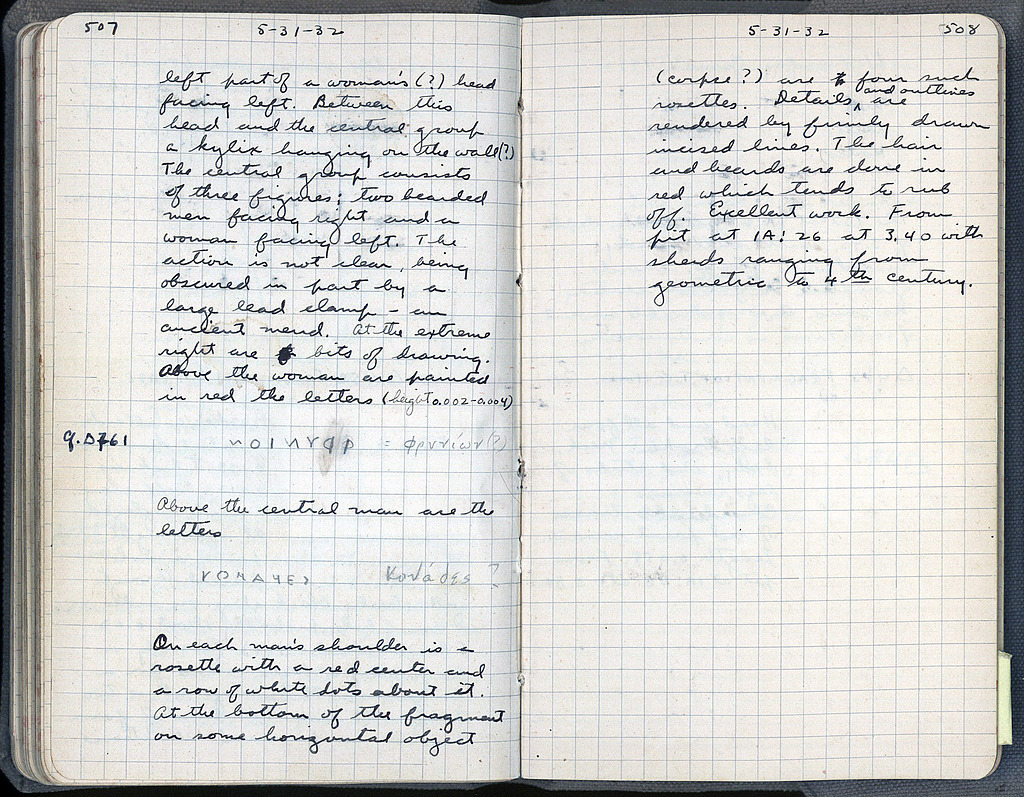 507
5-31-32
left part of a woman's (?) head
facing left. Between this
head and the central group
a kylix hanging on the wall (?)
The central group consists
of three figures; two bearded
men facing right and a
woman facing left. The
action is not clear, being
obscured in part by a
large lead clamp - an
ancient mend. At the extreme
right are bits of drawing.
Above the woman are painted
in red the letters (height 0.002-0.004)
= φρυνίων (?)
Above the central man are the
letters
?
On each man's shoulder is a
rosette with a red center and
a row of white dots about it.
At the bottom of the fragment
on some horizontal object
5-31-32
508
(corpse?) are four such
rosettes. Details and outlines are
rendered by firmly drawn
incised lines. The hair
and beards are done in
red which tends to rub
off. Excellent work. From
pit at 1A:26 at 3.40 with
sherds ranging from
geometric to 4th century.